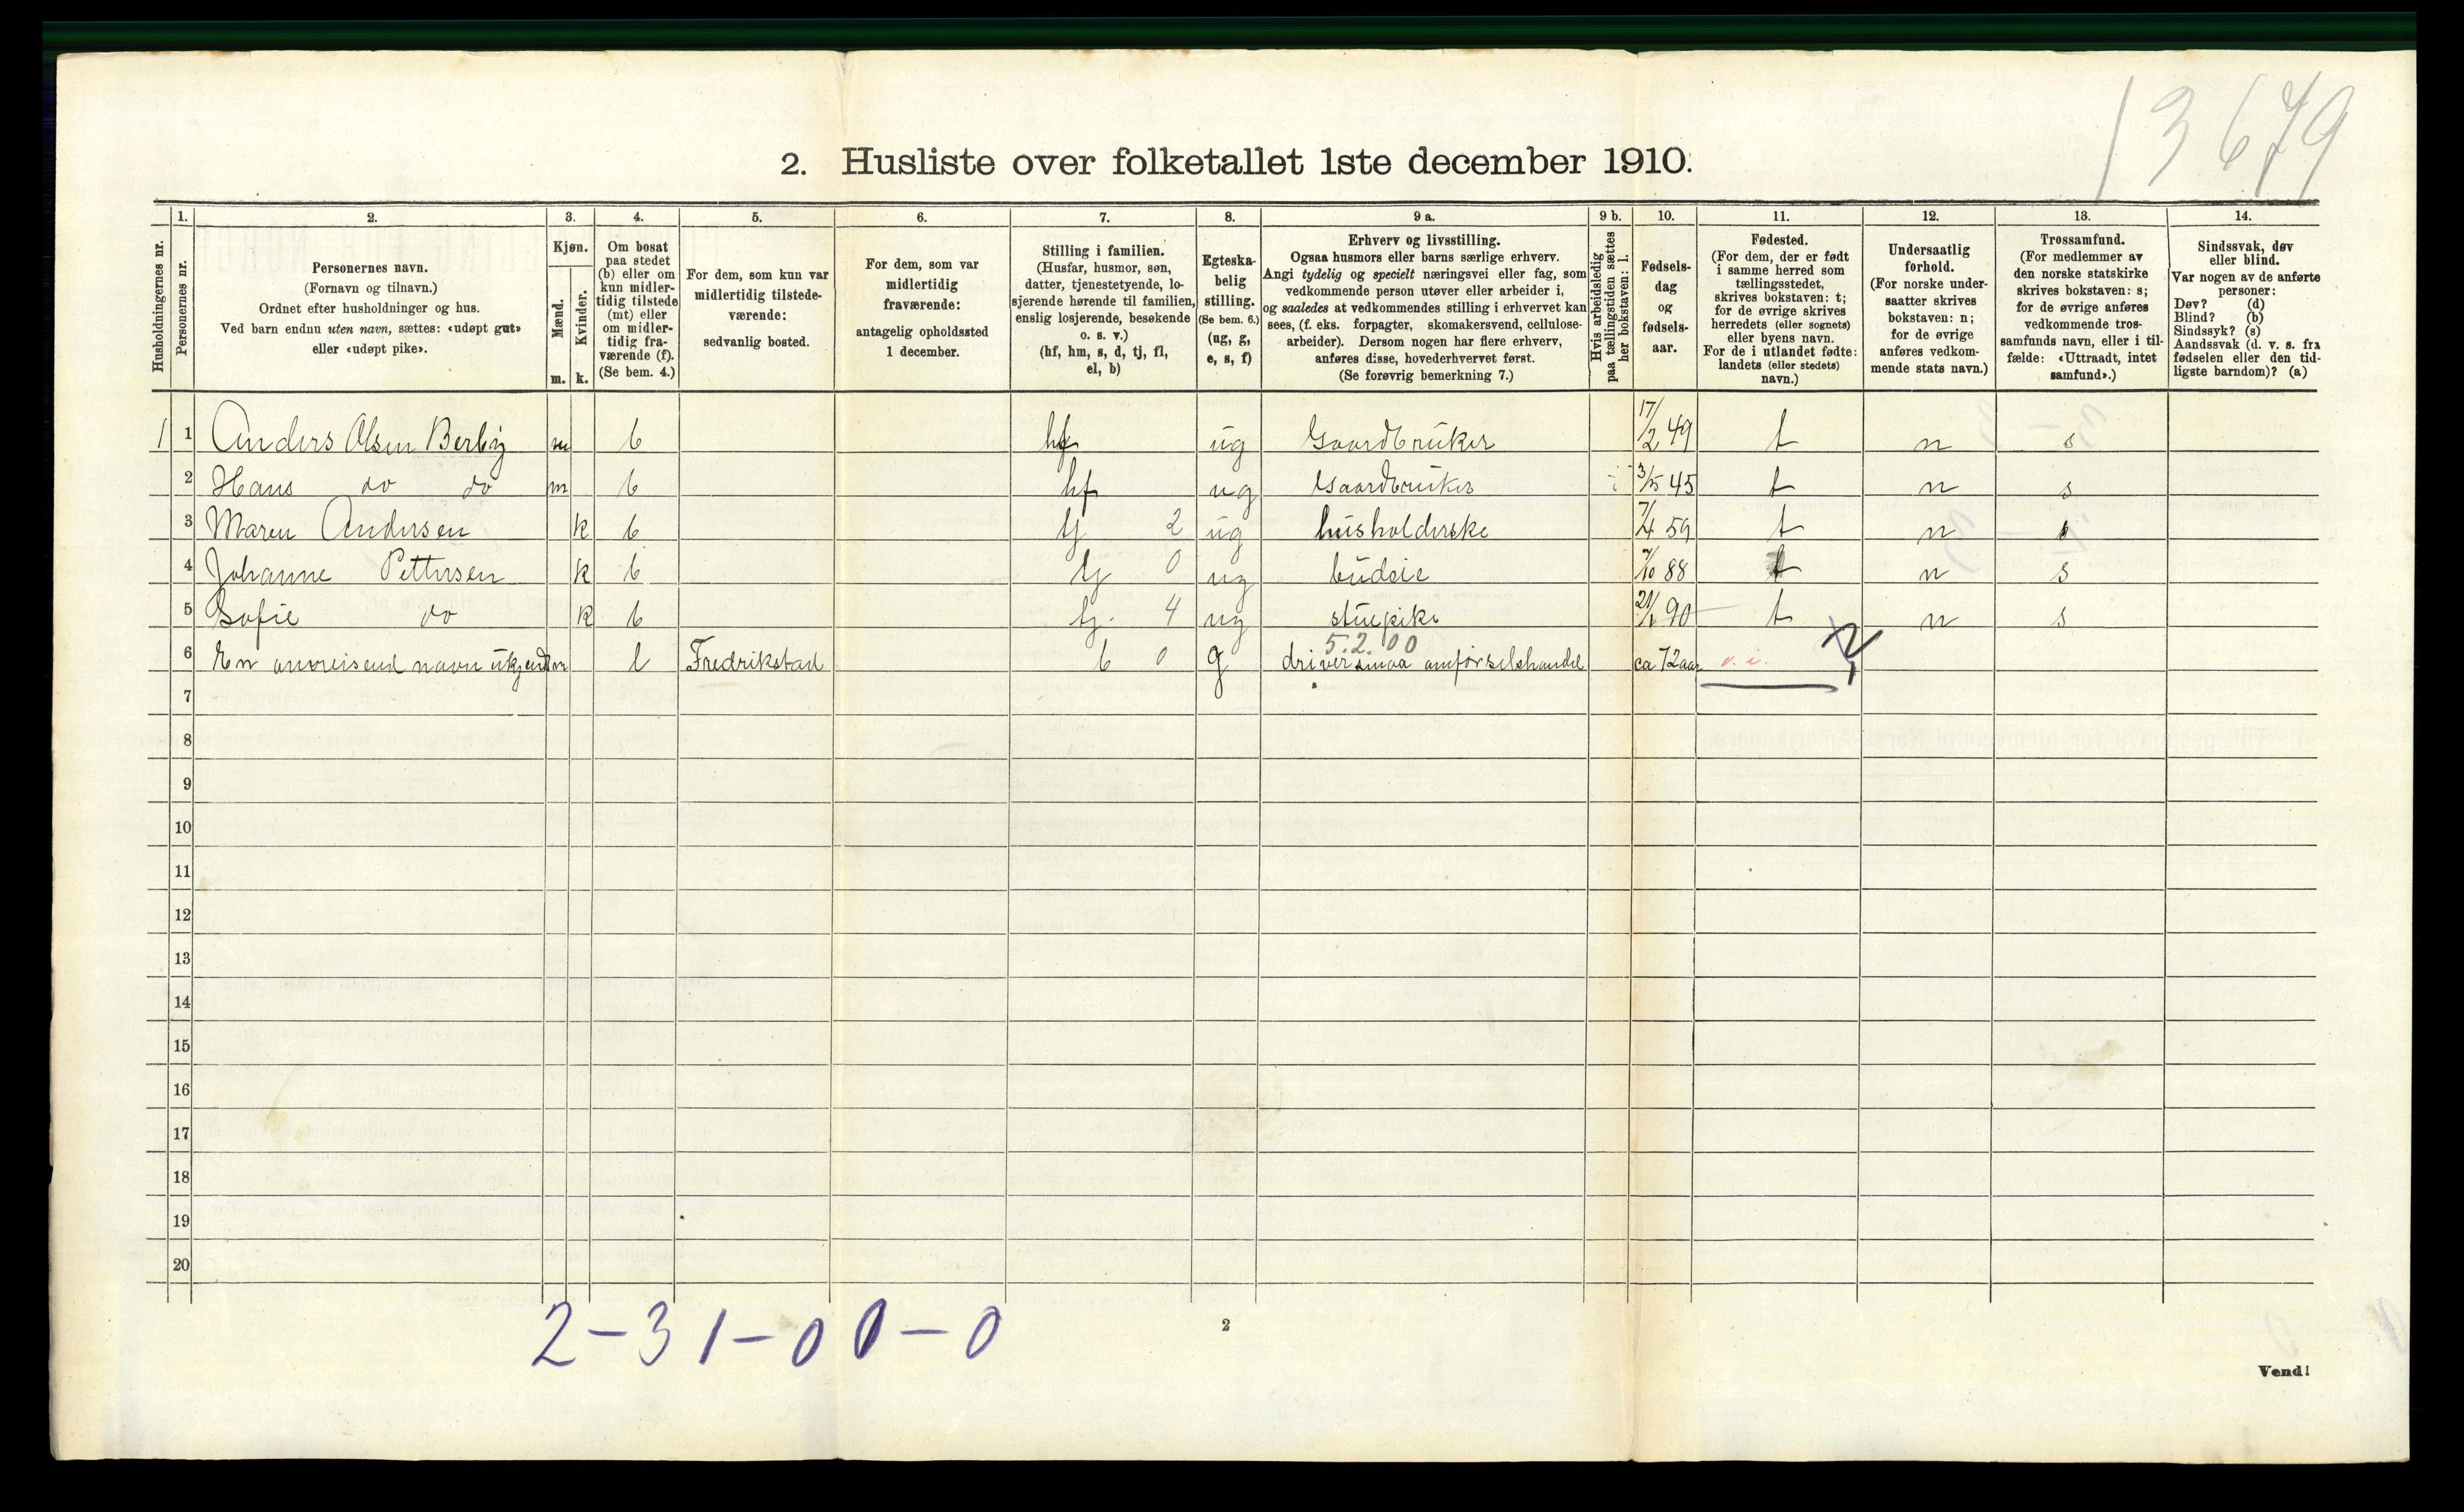 13679
2. Husliste over folketallet 1ste december 1910.
Husholdningernes nr.
1. Personernes nr.
2. Personernes navn.
(Fornavn og tilnavn.)
Ordnet efter husholdninger og hus.
Ved barn endnu uten navn, sættes: «udøpt gut»
eller «udøpt pike».
3. Kjøn.
Mænd. m.
Kvinder. k.
4. Om bosat
paa stedet
(b) eller om
kun midler-
tidig tilstede
(mt) eller
om midler-
tidig fra-
værende (f).
(Se bem. 4.)
5. For dem, som kun var
midlertidig tilstede-
værende:
sedvanlig bosted.
6. For dem, som var
midlertidig
fraværende:
antagelig opholdssted
1 december.
7. Stilling i familien.
(Husfar, husmor, søn,
datter, tjenestetyende, lo-
sjerende hørende til familien,
enslig losjerende, besøkende
o. s. v.)
(hf, hm, s, d, tj, fl,
el, b)
8. Egteska-
belig
stilling.
(Se bem. 6.)
(ug, g,
e, s, f)
9 a. Erhverv og livsstilling.
Ogsaa husmors eller barns særlige erhverv.
Angi tydelig og specielt næringsvei eller fag, som
vedkommende person utøver eller arbeider i,
og saaledes at vedkommendes stilling i erhvervet kan
sees, (f. eks. forpagter, skomakersvend, cellulose-
arbeider). Dersom nogen har flere erhverv,
anføres disse, hovederhvervet først.
(Se forøvrig bemerkning 7.)
9 b. Hvis arbeidsledig
paa tællingstiden sættes
her bokstaven: l.
10. Fødsels-
dag
og
fødsels-
aar.
11. Fødested.
(For dem, der er født
i samme herred som
tællingsstedet,
skrives bokstaven: t;
for de øvrige skrives
herredets (eller sognets)
eller byens navn.
For de i utlandet fødte:
landets (eller stedets)
navn.)
12. Undersaatlig
forhold.
(For norske under-
saatter skrives
bokstaven: n;
for de øvrige
anføres vedkom-
mende stats navn.)
13. Trossamfund.
(For medlemmer av
den norske statskirke
skrives bokstaven: s;
for de øvrige anføres
vedkommende tros-
samfunds navn, eller i til-
fælde: «Uttraadt, intet
samfund».)
14. Sindssvak, døv
eller blind.
Var nogen av de anførte
personer:
Døv? (d)
Blind? (b)
Sindssyk? (s)
Aandssvak (d. v. s. fra
fødselen eller den tid-
ligste barndom)? (a)
1 1 Anders Olsen Berby m b hf ug Gaardbruker 17/2 49 t n s
2 Hans do do m b hf ug Gaardbruker 3/5 45 t n s
3 Maren Andersen k b tj 2 ug husholderske 7/4 59 t n s
4 Johanne Pettersen k b tj 0 ug budeie 7/10 88 t n s
5 Sofie do k b tj. 4 ug stuepike 21/1 90 t n s
5.2.00
6 En navn ukjendt m Fredrikstad b 0 g driver smaa omførselshandel ca 72 aar
7
8
9
10
11
12
13
14
15
16
17
18
19
20
2-3 1-0 0-0
2
Vend!